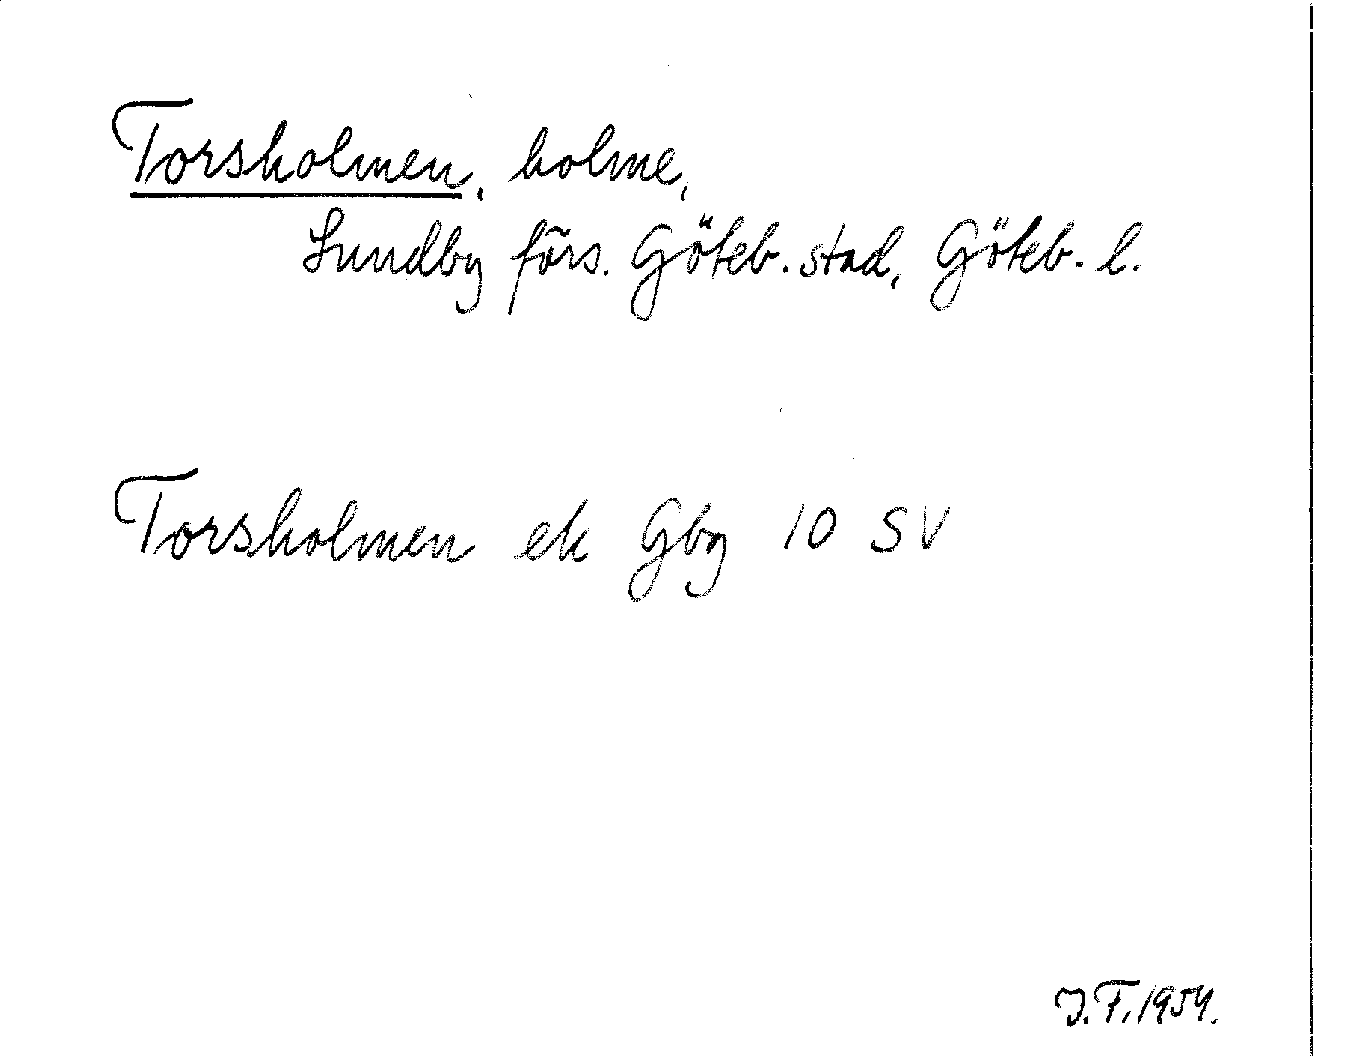 Torsholmen, holme,
Lundby förs. Göteb. stad, Göteb. l.
Torsholmen ek Gbg 10 SV
I.F. 1954.